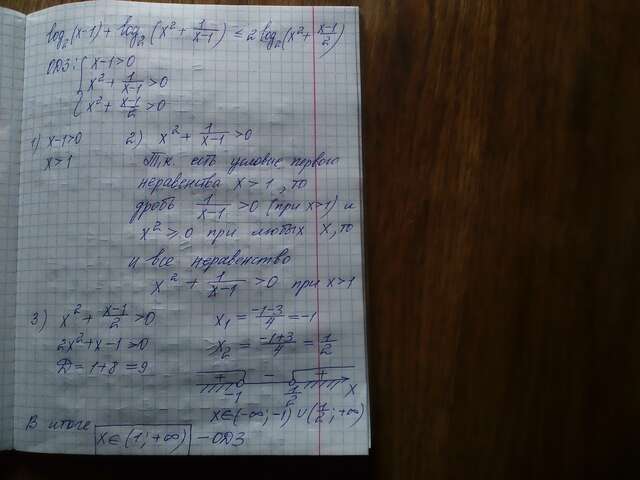 log₂(x-1) + log₂(x² + 1/(x-1)) ≤ 2log₂(x² + (x-1)/2)
ОДЗ: { x-1>0
x² + 1/(x-1) >0
x² + (x-1)/2 >0
1) x-1>0 2) x² + 1/(x-1) >0
x>1 Т.к. есть условие первого
неравенства x>1, то
дробь 1/(x-1) >0 (при x>1) и
x² ≥ 0 при любых x, то
и все неравенство
x² + 1/(x-1) >0 при x>1
3) x² + (x-1)/2 >0 x₁ = (-1-3)/4 = -1
2x²+x-1>0 x₂ = (-1+3)/4 = 1/2
D = 1+8 = 9
+ - +
-1 1/2 x
x∈(-∞;-1)∪(1/2;+∞)
В итоге x∈(1;+∞) - ОДЗ